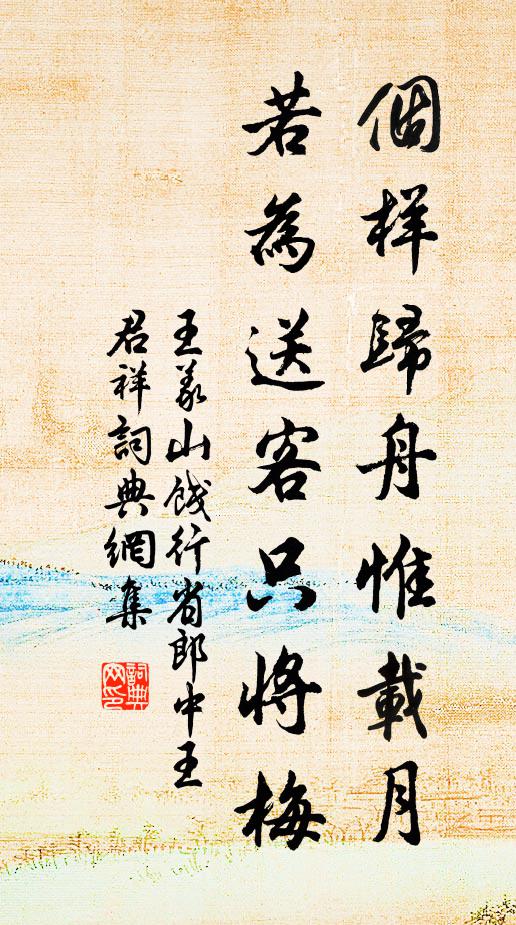 個样歸舟惟載月
若為送客只將梅
王義山餞行省郎中王
君祥詞典網集
詞典
网印